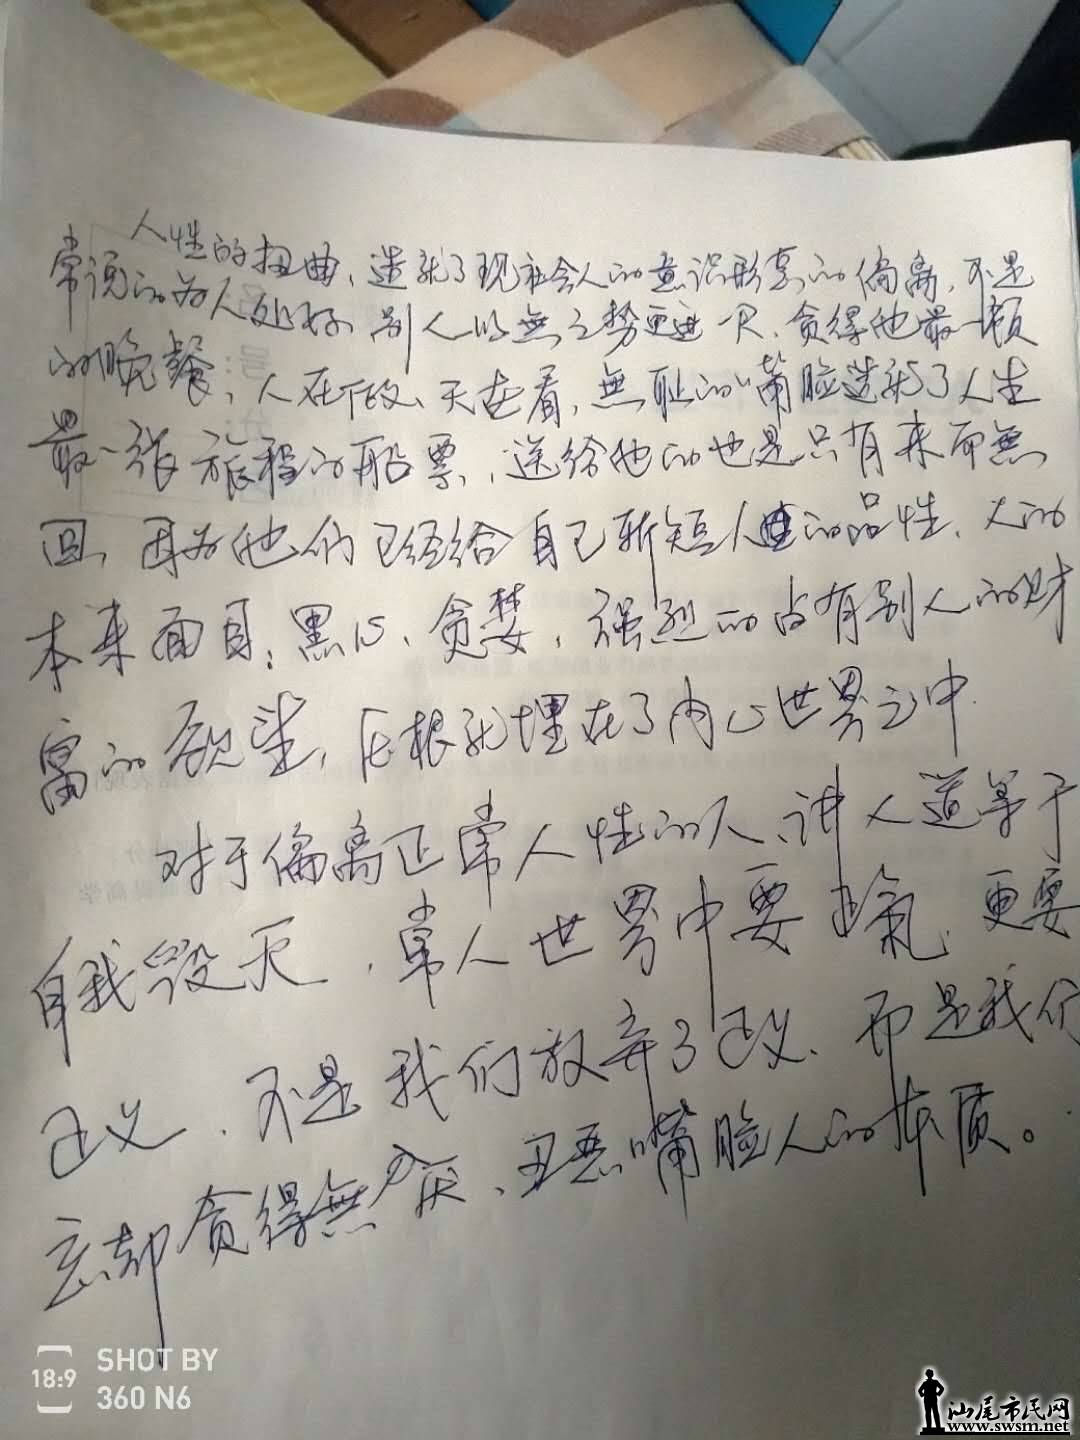 人性的扭曲，造就了现社会人的意识形态的偏离，不是
常说的为人处好，别人以無之势更进一尺，贪得他最一顿
的晚餐，人在做、天在看，無耻的嘴脸造就了人生
最一张旅程的船票，送给他的也是只有来而無
回，因为他们已经给自己斩短人生的品性、人的
本来面目：黑心、贪婪，强烈的占有别人的财
富的欲望，压根就埋在了内心世界之中.
对于偏离正常人性的人、讲人道等于
自我毁灭，常人世界中要正氣、更要
正义、不是我们放弃了正义、而是我们
忘却贪得無厌、丑恶嘴脸人的本质。
18:9
SHOT BY
360 N6
汕尾市民网
www.swsm.net